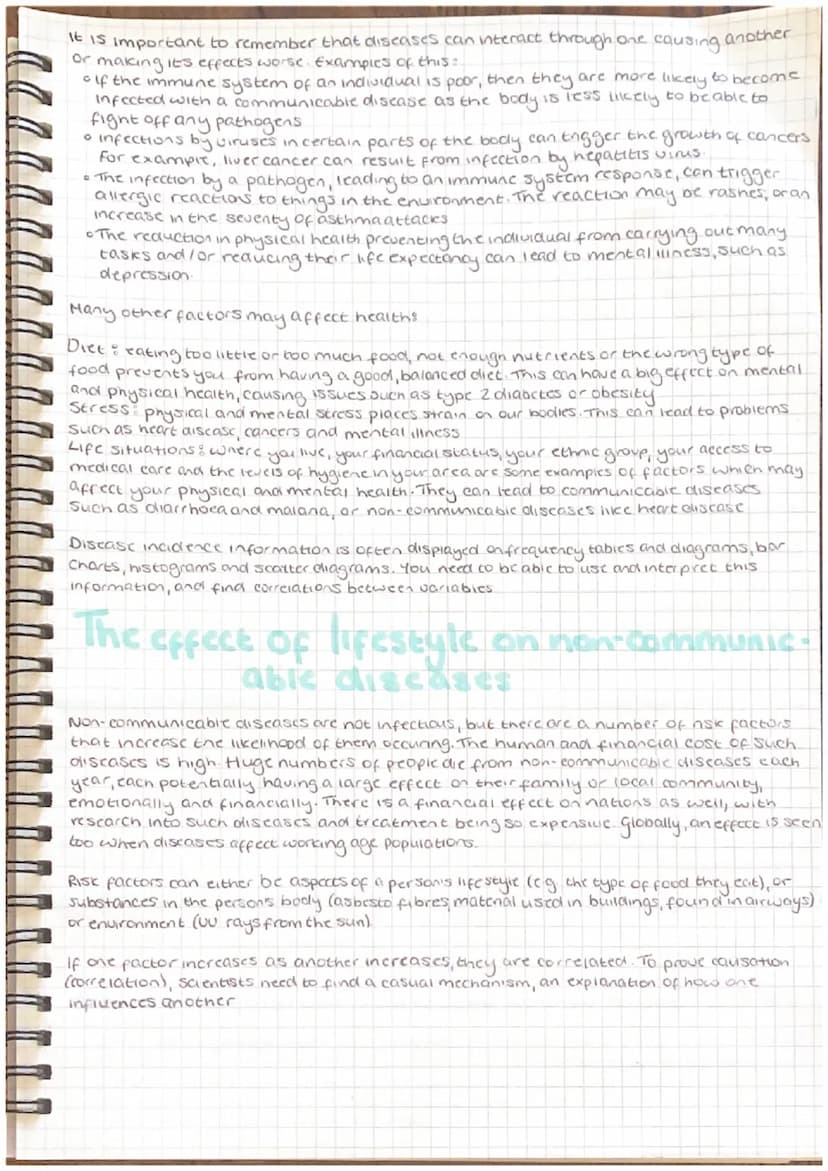 It is important to remember that diseases can interact through one causing another
or making its effects worse. Examples of this:
• If the immune system of an individual is poor, then they are more likely to become
infected with a communicable disease as the body is less likely to be able to
fight off any pathogens
• Infections by viruses in certain parts of the body can trigger the growth of cancers
For example, liver cancer can result from infection by hepatitis virus.
• The infection by a pathogen, leading to an immune system response, can trigger
allergic reactions to things in the environment. The reaction may be rashes, or an
increase in the severity of asthma attacks
• The reduction in physical health preventing the individual from carrying out many
tasks and/or reducing their life expectancy can lead to mental illness, such as
depression.
Many other factors may affect health:
Diet: eating too little or too much food, not enough nutrients or the wrong type of
food prevents you from having a good, balanced diet. This can have a big effect on mental
and physical health, causing issues such as type 2 diabetes or obesity
Stress: physical and mental stress places strain on our bodies. This can lead to problems
such as heart disease, cancers and mental illness
Life situations: where you live, your financial status, your ethnic group, your access to
medical care and the levels of hygiene in your area are some examples of factors which may
affect your physical and mental health. They can lead to communicable diseases
such as diarrhoea and malaria, or non-communicable diseases like heart disease
Disease incidence information is often displayed on frequency tables and diagrams, bar
charts, histograms and scatter diagrams. You need to be able to use and interpret this
information, and find correlations between variables
The effect of lifestyle on non-communic-
able diseases
Non-communicable diseases are not infectious, but there are a number of risk factors
that increase the likelihood of them occuring. The human and financial cost of such
diseases is high. Huge numbers of people die from non-communicable diseases each
year, each potentially having a large effect on their family or local community,
emotionally and financially. There is a financial effect on nations as well, with
research into such diseases and treatment being so expensive. Globally, an effect is seen
too when diseases affect working age populations.
Risk factors can either be aspects of a person's lifestyle (e.g. the type of food they eat), or
substances in the person's body (asbesto fibres, material used in buildings, found in airways)
or environment (UV rays from the sun)
If one factor increases as another increases, they are correlated. To prove causation
(correlation), scientists need to find a casual mechanism, an explanation of how one
influences another